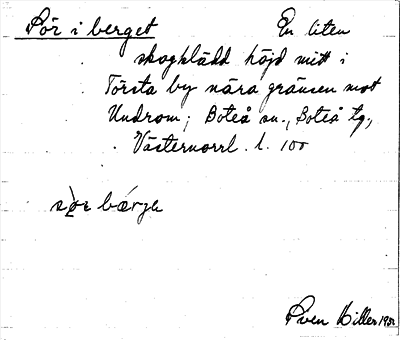 Sör i berget En liten
skogklädd höjd mitt i
Törsta by nära gränsen mot
Undrom; Boteå sn., Boteå tg.,
Västernorrl. l. 100
sør bærje
Sven Hiller 1950